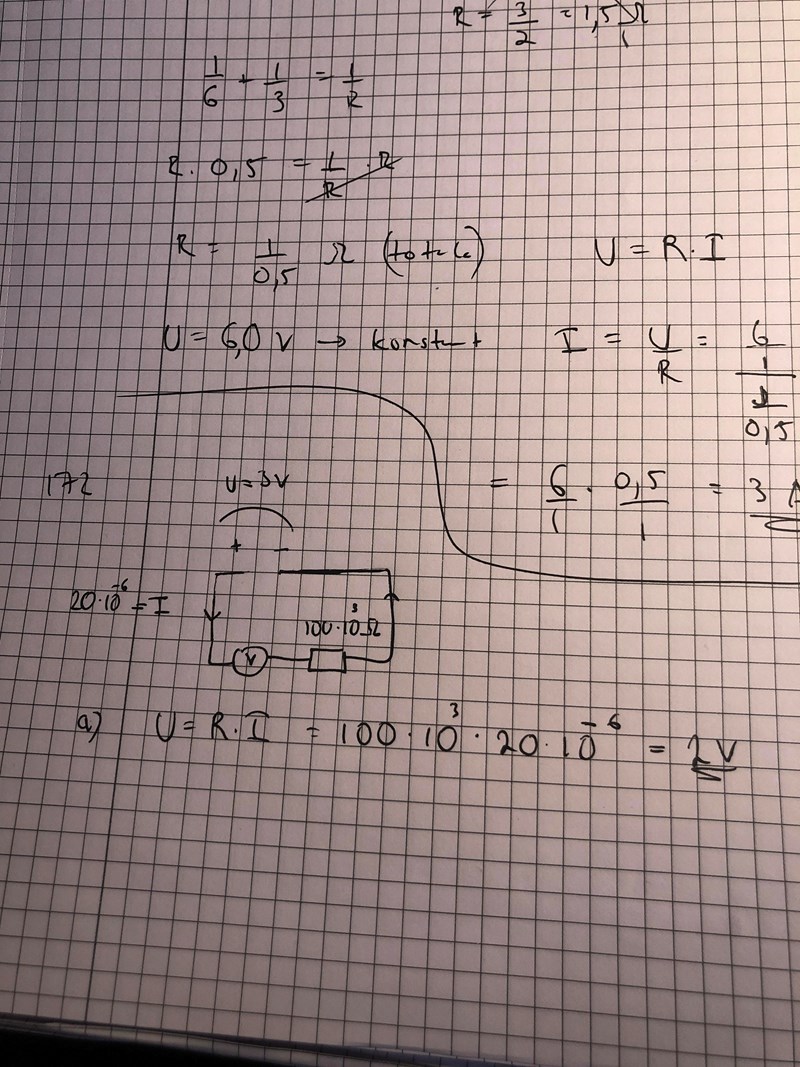 R = 3/2 = 1,5 Ω
1/6 + 1/3 = 1/R
R · 0,5 = 1/R · R
R = 1/0,5 Ω (totale) U = R · I
U = 6,0 V → konstant I = U/R = 6/(1/0,5)
= 6/1 · 0,5/1 = 3 A
172
U = 3V
+ −
20·10⁻⁶ = I
100·10³Ω
V
a) U = R · I = 100 · 10³ · 20 · 10⁻⁶ = 2 V